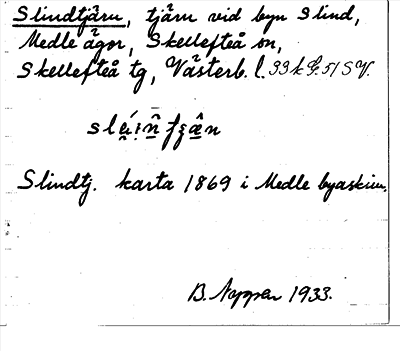 Slindtjärn, tjärn vid byn Slind,
Medle ägor, Skellefteå sn,
Skellefteå tg, Västerb. l. 33 k
Slindtj. karta 1869 i Medle byaskrin.
1933.